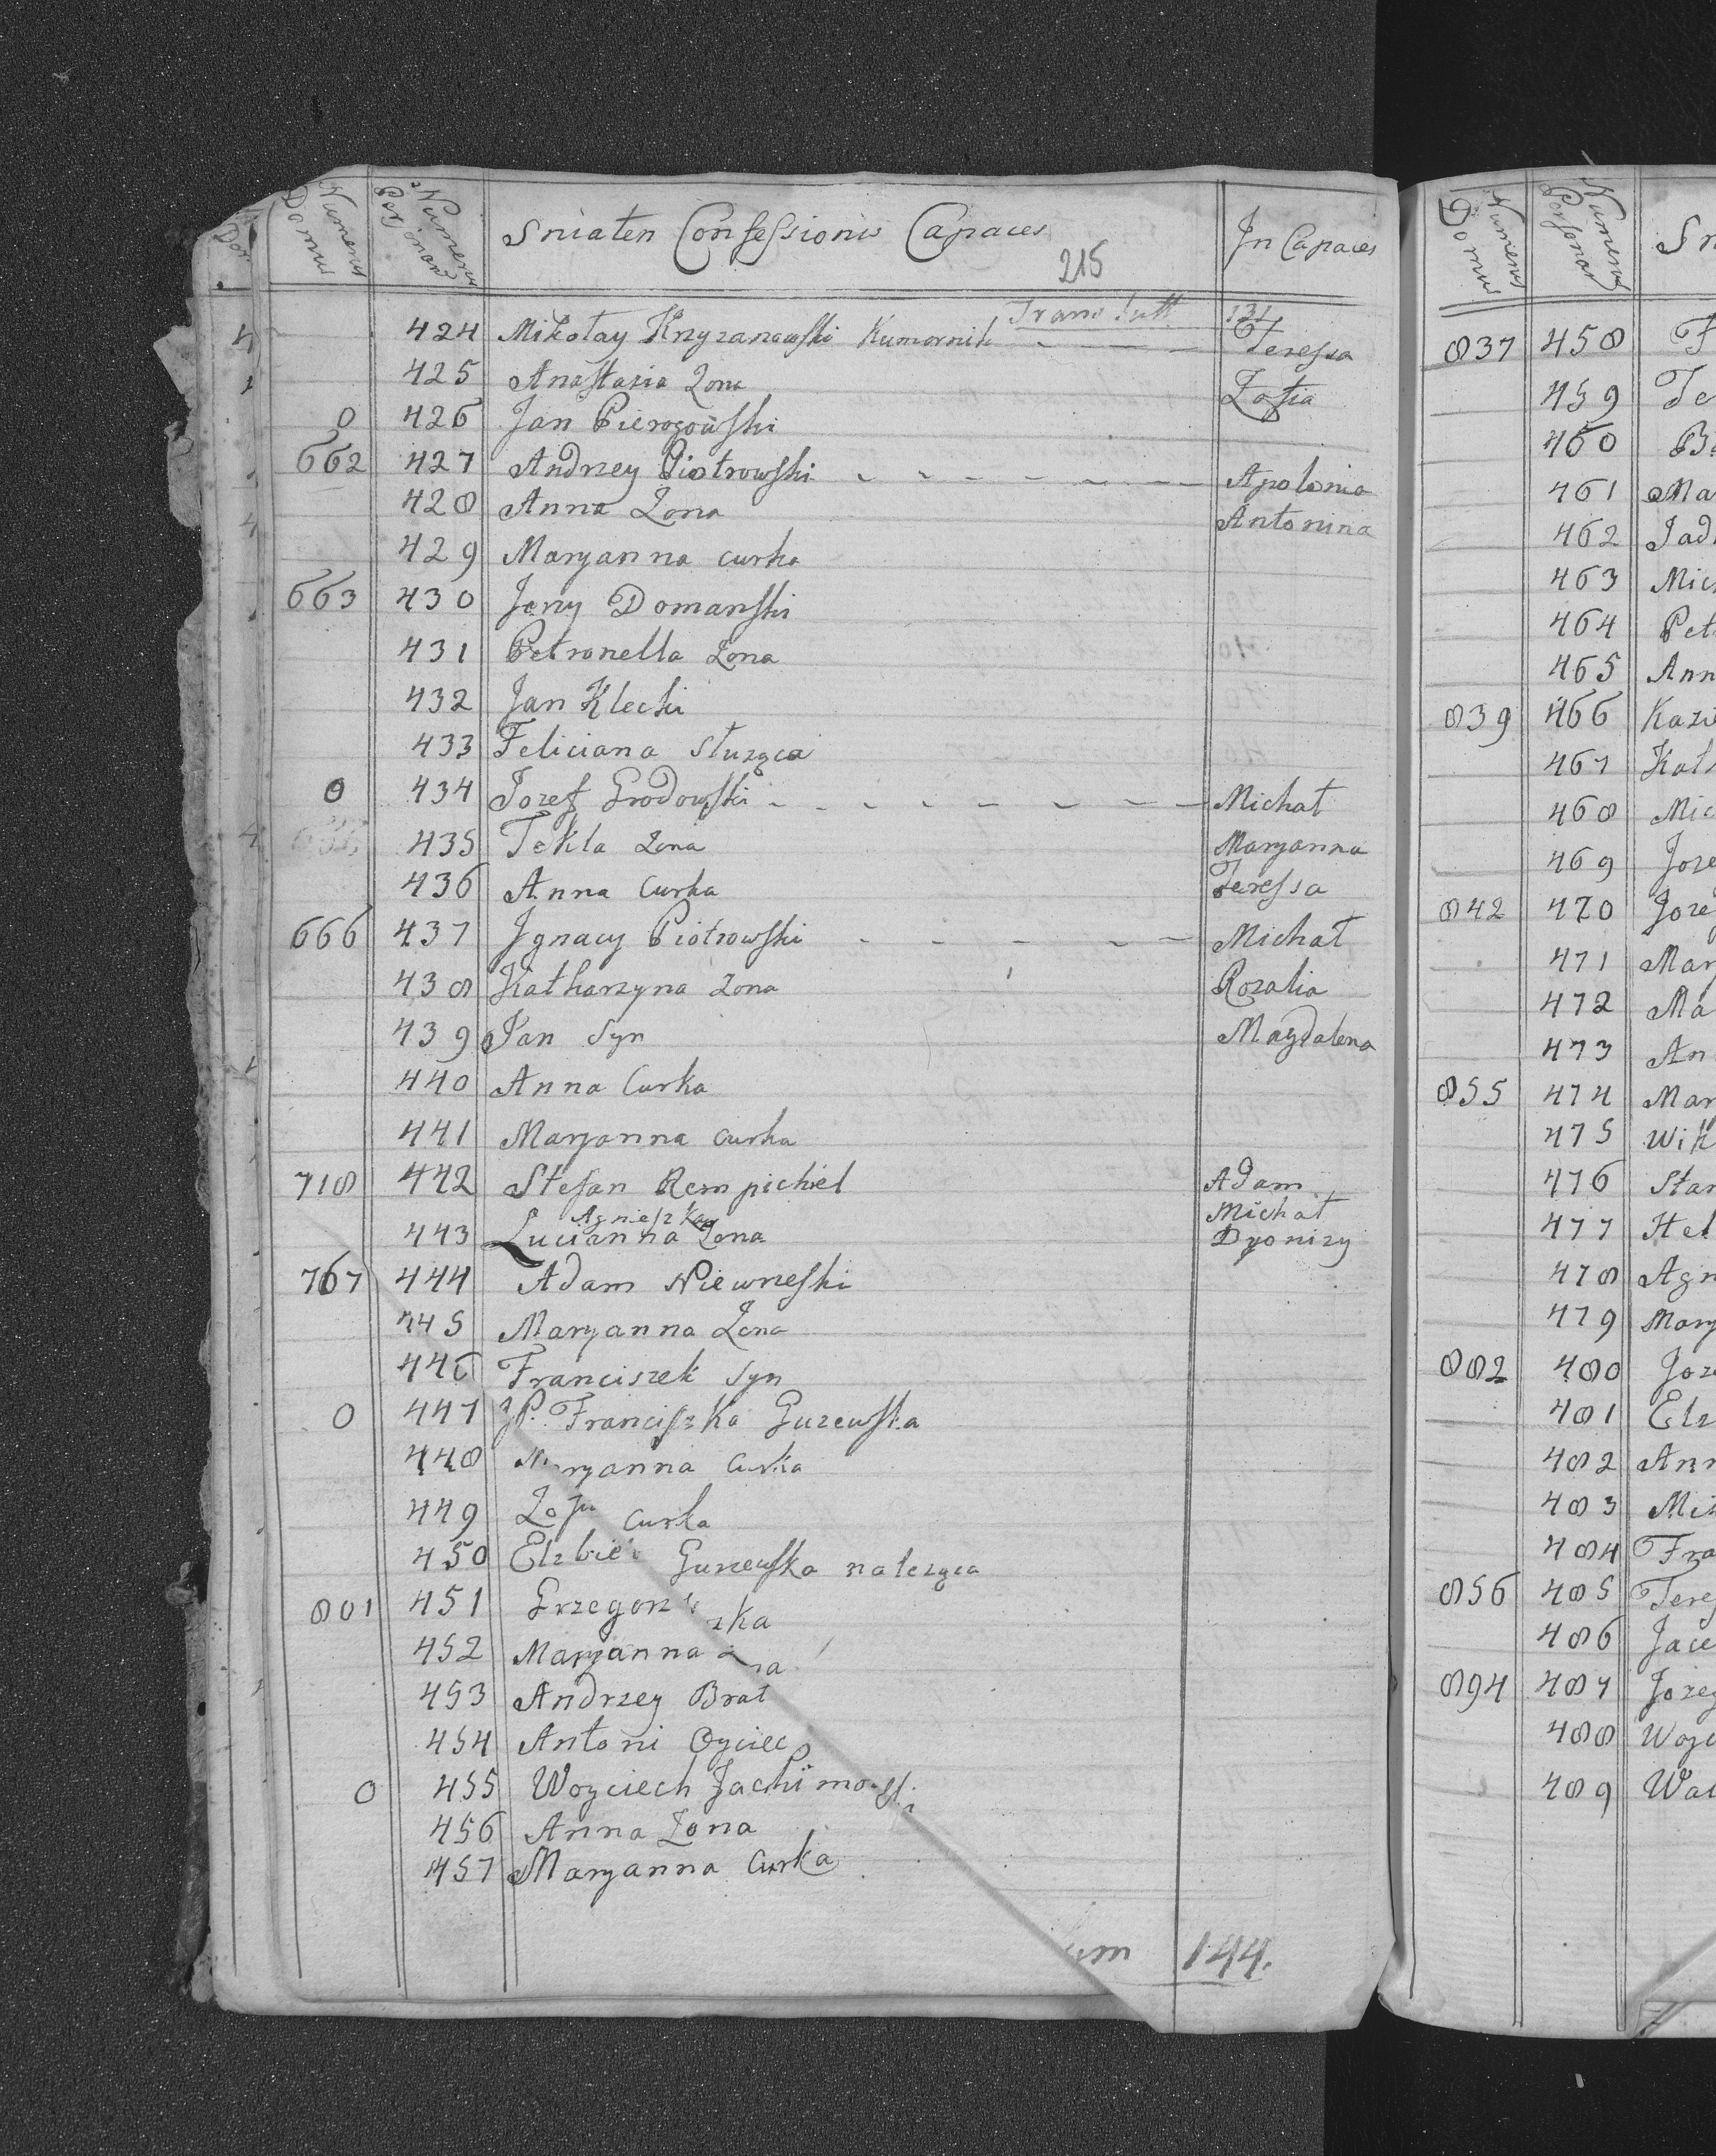 Numerus Domus Numerus Personar Sniaten Confessionis Capaces In Capaces
215
424 Mikołay Krzyzanowski Kumornik 131 Teressa
425 Anastazia Zona Zofia
0 426 Jan Pierogowski
662 427 Andrzey Piotrowski Apolonia
428 Anna Zona Antonina
429 Maryanna curka
663 430 Jerzy Domanski
431 Petronella Zona
432 Jan Klecki
433 Feliciana służąca
0 434 Jozef Grodowski Michał
435 Tekla Zona Maryanna
436 Anna Curka Teressa
666 437 Jgnacy Piotrowski Michał
438 Katharzyna Zona Rozalia
439 Jan Syn Magdalena
440 Anna Curka
441 Maryanna curka
718 442 Stefan Rempichel Adam
Agnieszka Michał
443 Lucianna Zona Dyonizy
767 444 Adam Niewneski
445 Maryanna Zona
446 Franciszek Syn
0 447 JP. Franciszka Guzewska
448 ryanna Curka
449 Curka
450 Elzbie Guzewska należąca
801 451 Grzegorz zka
452 Maryanna na
453 Andrzey Brat
454 Antoni Oyciec
0 455 Woyciech Jachimowski
456 Anna Zona
457 Maryanna Curka
um 144.
Numerus Domus Numerus Personar Sn
837 458 F
459 Te
460 B
461 Ma
462 Jad
463 Mich
464 Pet
465 Ann
839 466 Kazi
467 Kath
468 Mic
469 Joze
842 470 Joze
471 Mary
472 Ma
473 An
855 474 Mar
475 Wik
476 Stan
477 Hel
478 Agn
479 Mary
882 480 Joz
481 Elz
482 Ann
483 Mik
484 Fra
856 485 Teres
486 Jace
894 487 Jozef
488 Woyc
489 Wal